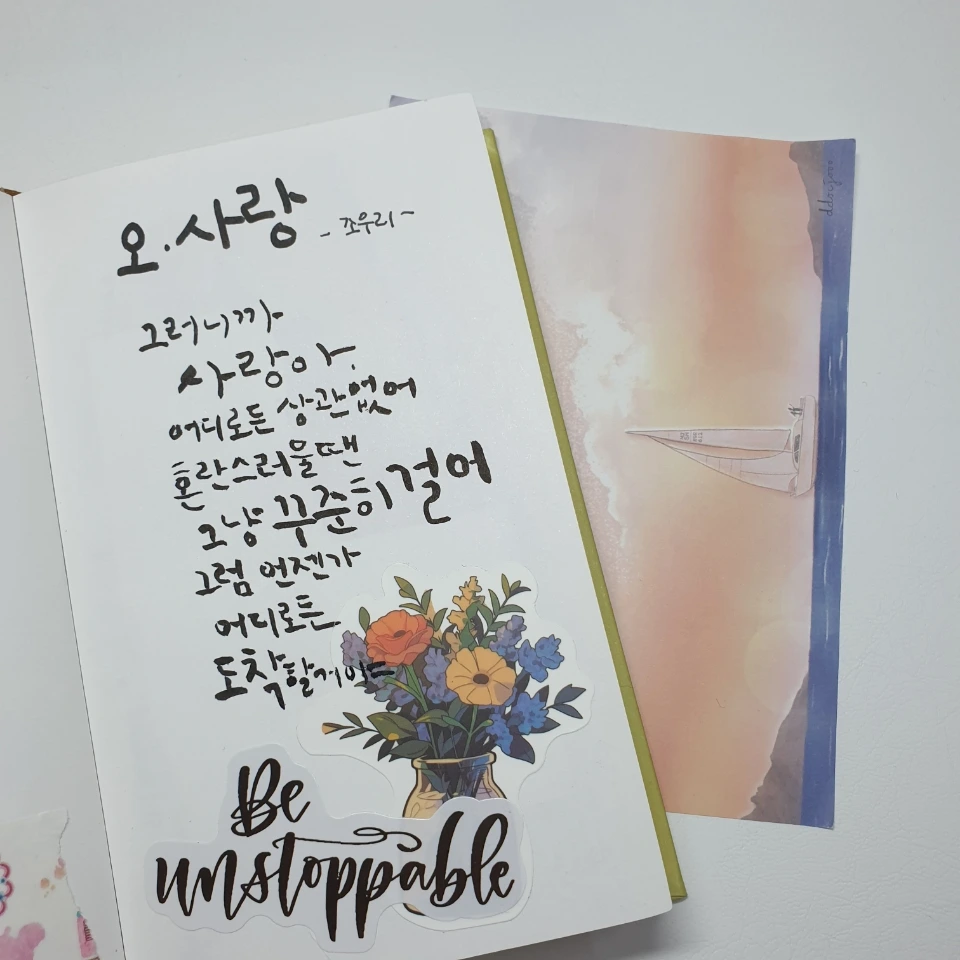 오.사랑 - 조우리 -
그러니까
사랑아.
어디로든 상관없어
혼란스러울땐
그냥 꾸준히 걸어
그럼 언젠가
어디로든
도착할거야
Be
unstoppable